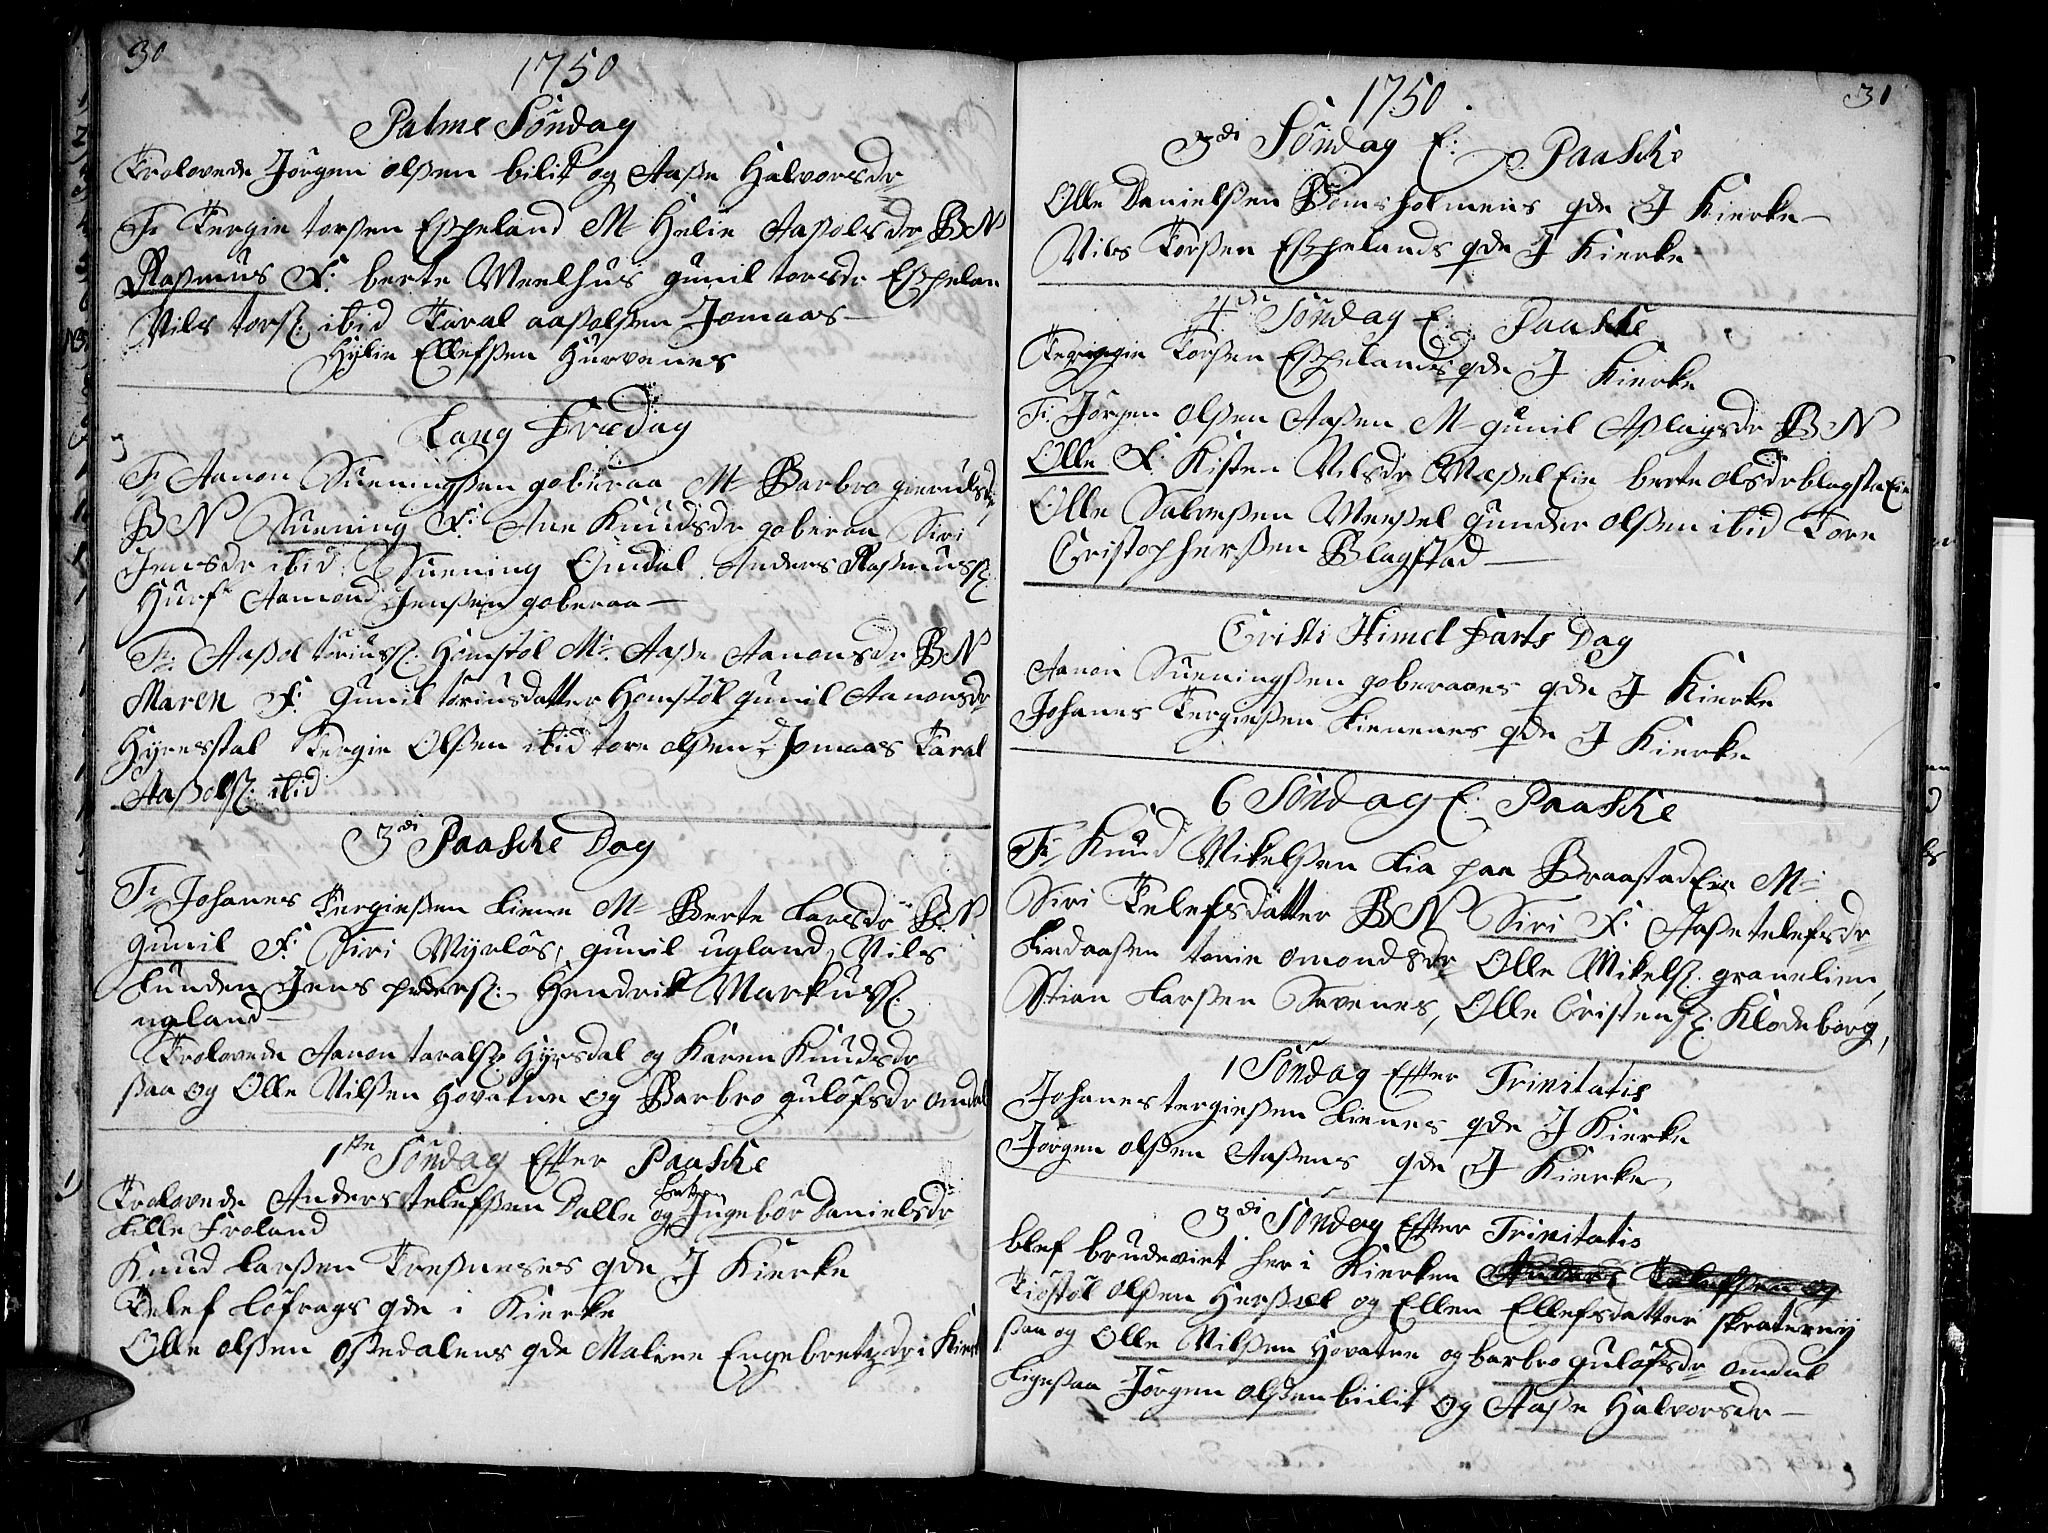 30
1750
Palme Söndag
Trolovede Jörgen olßen bilit og Aaße Halvorsdr
Fr Tergie torßen Eßpeland M Helie Aaßolsdr BN
Raßmus F: berte Meelhus gunil torsdr Eßpelan
Nils torß: ibid Taral aaßolßen Jomaas
Hylie Ellefßen Hurvenes
Lang Fredag
Fr Aanon Sueningßen goberaa M Barbro gierulsdr
BN Suening F: Ane Knudsdr goberaa Siri
Jensdr ibid, Suening Omdal Anders Raßmusß:
Hurf Aamond Jenßen goberaa
Fr Aaßol toriusß: Homstöl M: Aaße Aanonsdr BN
Maren F: Gunil toriusdatter Homstöl gunil Aanonsdr
Hynestal Tergie Olßen ibid tore olßen Jomaas Taral
Aaßolß: ibid
3di Paaske Dag
Fr Johanes Tergießen Liene M Berte Larsdr BN
gunil F: Siri Myrlös, gunil ugland, Nils
Lunden Jens pederß: Hendrik Markusß:
ugland
Trolovede Aanon taralß: Hyrsdal og Karen Knudsdr
ßaa og Olle Nilßen Hovatne og Barbro gulöfsdr omdal
1ste Söndag Efter Paaske
Trolovede Anders telefßen Dalle og Ingebör Danielsdr
Lille Froland
Knud Larßen Treßneses gde J Kierke
Telef Löfrags gde i Kierke
Olle olßen oßedalens gde Malene Engebretzdr i Kierk
31
1750
3di Söndag E: Paaske
Olle Danielßen Bomsholmens gde J Kierke
Nils Torßen Eßpelands gde J Kierke
4de Söndag E: Paaske
Tergie Torßen Eßpelands gde J Kierke
Fr Jörgen olßen Aaßen M gunil Aßlagsdr BN
Olle F: Kisten Nilsdr Meßel Eie berte olsdr blagsta Eie
Olle Salveßen Meeßel gunder olßen ibid Tore
Cristopherßen Blagstad
Cristi Himel Farts Dag
Aanon Sueningßen goberaaes gde J Kierke
Johanes Tergießen Lienenes gde J Kierke
6 Söndag E: Paaske
Fr Knud Mikelßen Lia paa Braastad Eie M:
Siri Telefsdatter BN Siri F: Aaße telefsdr
Lindaaßen tonie omondsdr Olle Mikelß: granelien,
Stian Larßen Sevenes, Olle Cristenß: Klodeborg,
1 Söndag Efter Trinitatis
Johanes tergießen Lienes gde J Kierke
Jörgen olßen Aaßens gde J Kierke
3di Söndag Efter Trinitatis
blef brudeviet her i Kierken Anders Telefßen og
Kiöstöl olßen Herßel og Ellen Ellefsdatter skraterey
ßaa og Olle Nilßen Hovatne og barbro gulöfsdr omdal
Ligeßaa Jörgen olßen bielit og Aaße Halvorsdr